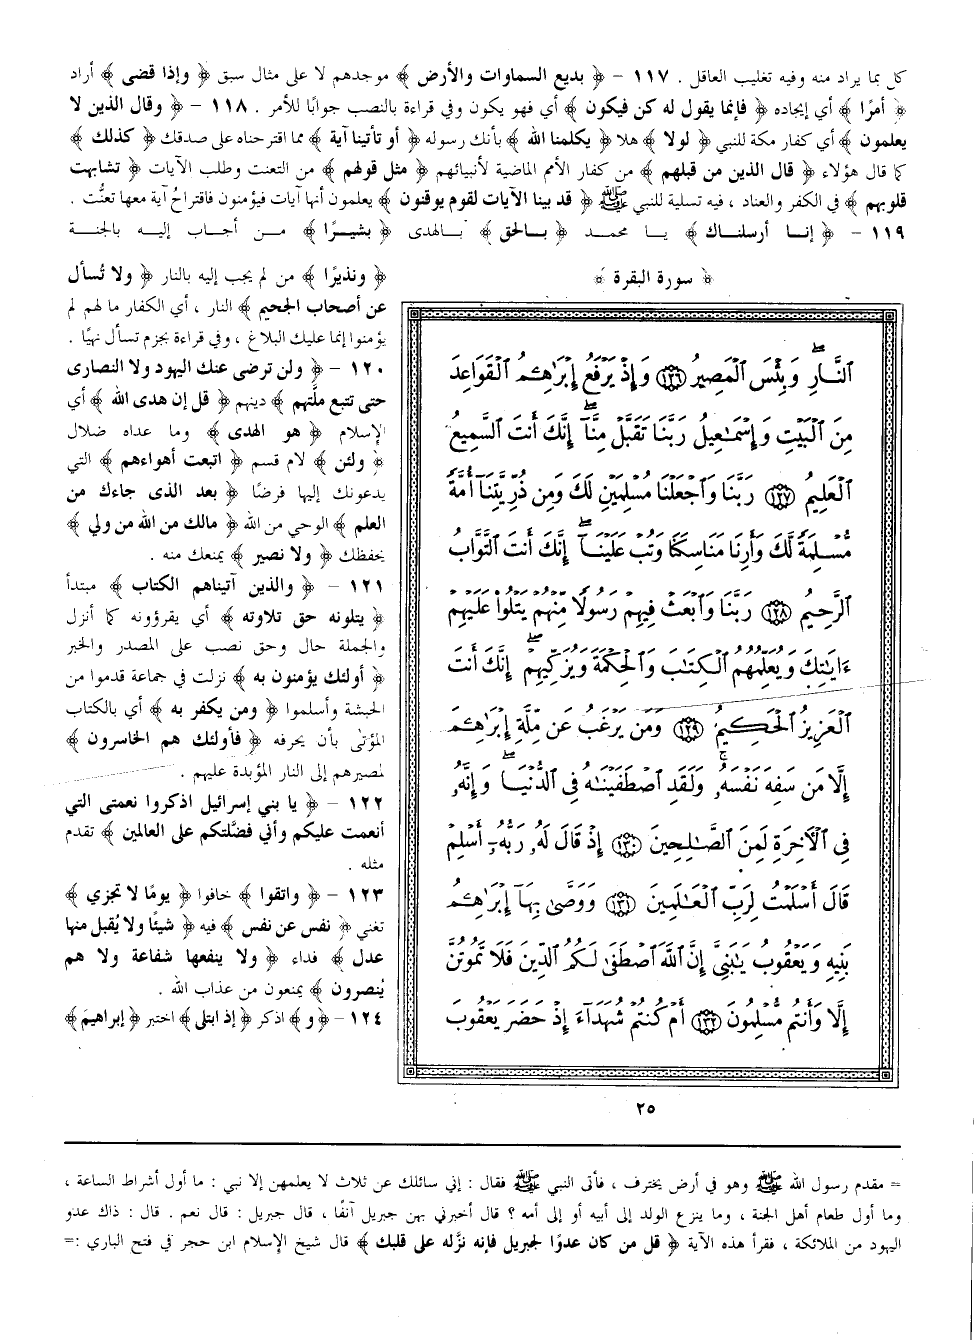 كل بما يراد منه وفيه تغليب العاقل . ١١٧ - ﴿ بديع السماوات والأرض ﴾ موجدهم لا على مثال سبق ﴿ وإذا قضى ﴾ أراد
﴿ أمرًا ﴾ أي إيجاده ﴿ فإنما يقول له كن فيكون ﴾ أي فهو يكون وفي قراءة بالنصب جوابًا للأمر . ١١٨ - ﴿ وقال الذين لا
يعلمون ﴾ أي كفار مكة للنبي ﴿ لولا ﴾ هلا ﴿ يكلمنا الله ﴾ بأنك رسوله ﴿ أو تأتينا آية ﴾ مما اقترحناه على صدقك ﴿ كذلك ﴾
كما قال هؤلاء ﴿ قال الذين من قبلهم ﴾ من كفار الأمم الماضية لأنبيائهم ﴿ مثل قولهم ﴾ من التعنت وطلب الآيات ﴿ تشابهت
قلوبهم ﴾ في الكفر والعناد ، فيه تسلية للنبي ﷺ ﴿ قد بينا الآيات لقوم يوقنون ﴾ يعلمون أنها آيات فيؤمنون فاقتراحُ آية معها تعنُّت .
١١٩ - ﴿ إنا أرسلناك ﴾ يا محمد ﴿ بالحق ﴾ بالهدى ﴿ بشيرًا ﴾ من أجاب إليه بالجنة
﴿ ونذيرًا ﴾ من لم يجب إليه بالنار ﴿ ولا تُسأل
عن أصحاب الجحيم ﴾ النار ، أي الكفار ما لهم لم
يؤمنوا إنما عليك البلاغ ، وفي قراءة بجزم تسأل نهيًا .
١٢٠ - ﴿ ولن ترضى عنك اليهود ولا النصارى
حتى تتبع ملَّتهم ﴾ دينهم ﴿ قل إن هدى الله ﴾ أي
الإسلام ﴿ هو الهدى ﴾ وما عداه ضلال
﴿ ولئن ﴾ لام قسم ﴿ اتبعت أهواءهم ﴾ التي
يدعونك إليها فرضًا ﴿ بعد الذى جاءك من
العلم ﴾ الوحي من الله ﴿ مالك من الله من ولي ﴾
يحفظك ﴿ ولا نصير ﴾ يمنعك منه .
١٢١ - ﴿ والذين آتيناهم الكتاب ﴾ مبتدأ
﴿ يتلونه حق تلاوته ﴾ أي يقرؤونه كما أنزل
والجملة حال وحق نصب على المصدر والخبر
﴿ أولئك يؤمنون به ﴾ نزلت في جماعة قدموا من
الحبشة وأسلموا ﴿ ومن يكفر به ﴾ أي بالكتاب
المؤتى بأن يحرفه ﴿ فأولئك هم الخاسرون ﴾
لمصيرهم إلى النار المؤبدة عليهم .
١٢٢ - ﴿ يا بني إسرائيل اذكروا نعمتي التي
أنعمت عليكم وأني فضَّلتكم على العالمين ﴾ تقدم
مثله .
١٢٣ - ﴿ واتقوا ﴾ خافوا ﴿ يومًا لا تجزي ﴾
تغني ﴿ نفس عن نفس ﴾ فيه ﴿ شيئًا ولا يُقبل منها
عدل ﴾ فداء ﴿ ولا ينفعها شفاعة ولا هم
يُنصرون ﴾ يمنعون من عذاب الله .
١٢٤ - ﴿ و ﴾ اذكر ﴿ إذ ابتلى ﴾ اختبر ﴿ إبراهيمَ ﴾
﴿ سورة البقرة ﴾
ٱلنَّارِ ۖ وَبِئْسَ ٱلْمَصِيرُ ١٢٦ وَإِذْ يَرْفَعُ إِبْرَٰهِـۧمُ ٱلْقَوَاعِدَ
مِنَ ٱلْبَيْتِ وَإِسْمَـٰعِيلُ رَبَّنَا تَقَبَّلْ مِنَّآ ۖ إِنَّكَ أَنتَ ٱلسَّمِيعُ
ٱلْعَلِيمُ ١٢٧ رَبَّنَا وَٱجْعَلْنَا مُسْلِمَيْنِ لَكَ وَمِن ذُرِّيَّتِنَآ أُمَّةً
مُّسْلِمَةً لَّكَ وَأَرِنَا مَنَاسِكَنَا وَتُبْ عَلَيْنَآ ۖ إِنَّكَ أَنتَ ٱلتَّوَّابُ
ٱلرَّحِيمُ ١٢٨ رَبَّنَا وَٱبْعَثْ فِيهِمْ رَسُولًا مِّنْهُمْ يَتْلُوا۟ عَلَيْهِمْ
ءَايَـٰتِكَ وَيُعَلِّمُهُمُ ٱلْكِتَـٰبَ وَٱلْحِكْمَةَ وَيُزَكِّيهِمْ ۖ إِنَّكَ أَنتَ
ٱلْعَزِيزُ ٱلْحَكِيمُ ١٢٩ وَمَن يَرْغَبُ عَن مِّلَّةِ إِبْرَٰهِـۧمَ
إِلَّا مَن سَفِهَ نَفْسَهُۥ ۚ وَلَقَدِ ٱصْطَفَيْنَـٰهُ فِى ٱلدُّنْيَا ۖ وَإِنَّهُۥ
فِى ٱلْـَٔاخِرَةِ لَمِنَ ٱلصَّـٰلِحِينَ ١٣٠ إِذْ قَالَ لَهُۥ رَبُّهُۥٓ أَسْلِمْ
قَالَ أَسْلَمْتُ لِرَبِّ ٱلْعَـٰلَمِينَ ١٣١ وَوَصَّىٰ بِهَآ إِبْرَٰهِـۧمُ
بَنِيهِ وَيَعْقُوبُ يَـٰبَنِىَّ إِنَّ ٱللَّهَ ٱصْطَفَىٰ لَكُمُ ٱلدِّينَ فَلَا تَمُوتُنَّ
إِلَّا وَأَنتُم مُّسْلِمُونَ ١٣٢ أَمْ كُنتُمْ شُهَدَآءَ إِذْ حَضَرَ يَعْقُوبَ
٢٥
= مقدم رسول الله ﷺ وهو في أرض يخترف ، فأتى النبي ﷺ فقال : إني سائلك عن ثلاث لا يعلمهن إلا نبي : ما أول أشراط الساعة ،
وما أول طعام أهل الجنة ، وما ينزع الولد إلى أبيه أو إلى أمه ؟ قال أخبرني بهن جبريل آنفًا ، قال جبريل : قال نعم . قال : ذاك عدو
اليهود من الملائكة ، فقرأ هذه الآية ﴿ قل من كان عدوًا لجبريل فإنه نزَّله على قلبك ﴾ قال شيخ الإسلام ابن حجر في فتح الباري :=